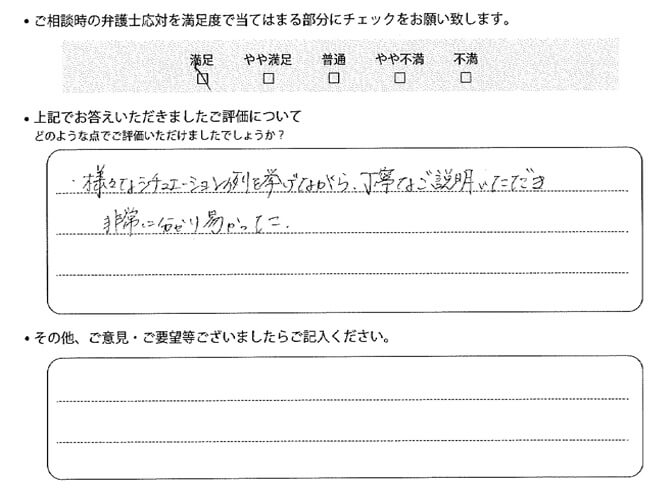 ・ご相談時の弁護士応対を満足度で当てはまる部分にチェックをお願い致します。
満足 やや満足 普通 やや不満 不満
・上記でお答えいただきましたご評価について
どのような点でご評価いただけましたでしょうか？
・様々なシチュエーション例を挙げながら、丁寧なご説明いただき
非常に分かり易かったです。
・その他、ご意見・ご要望等ございましたらご記入ください。